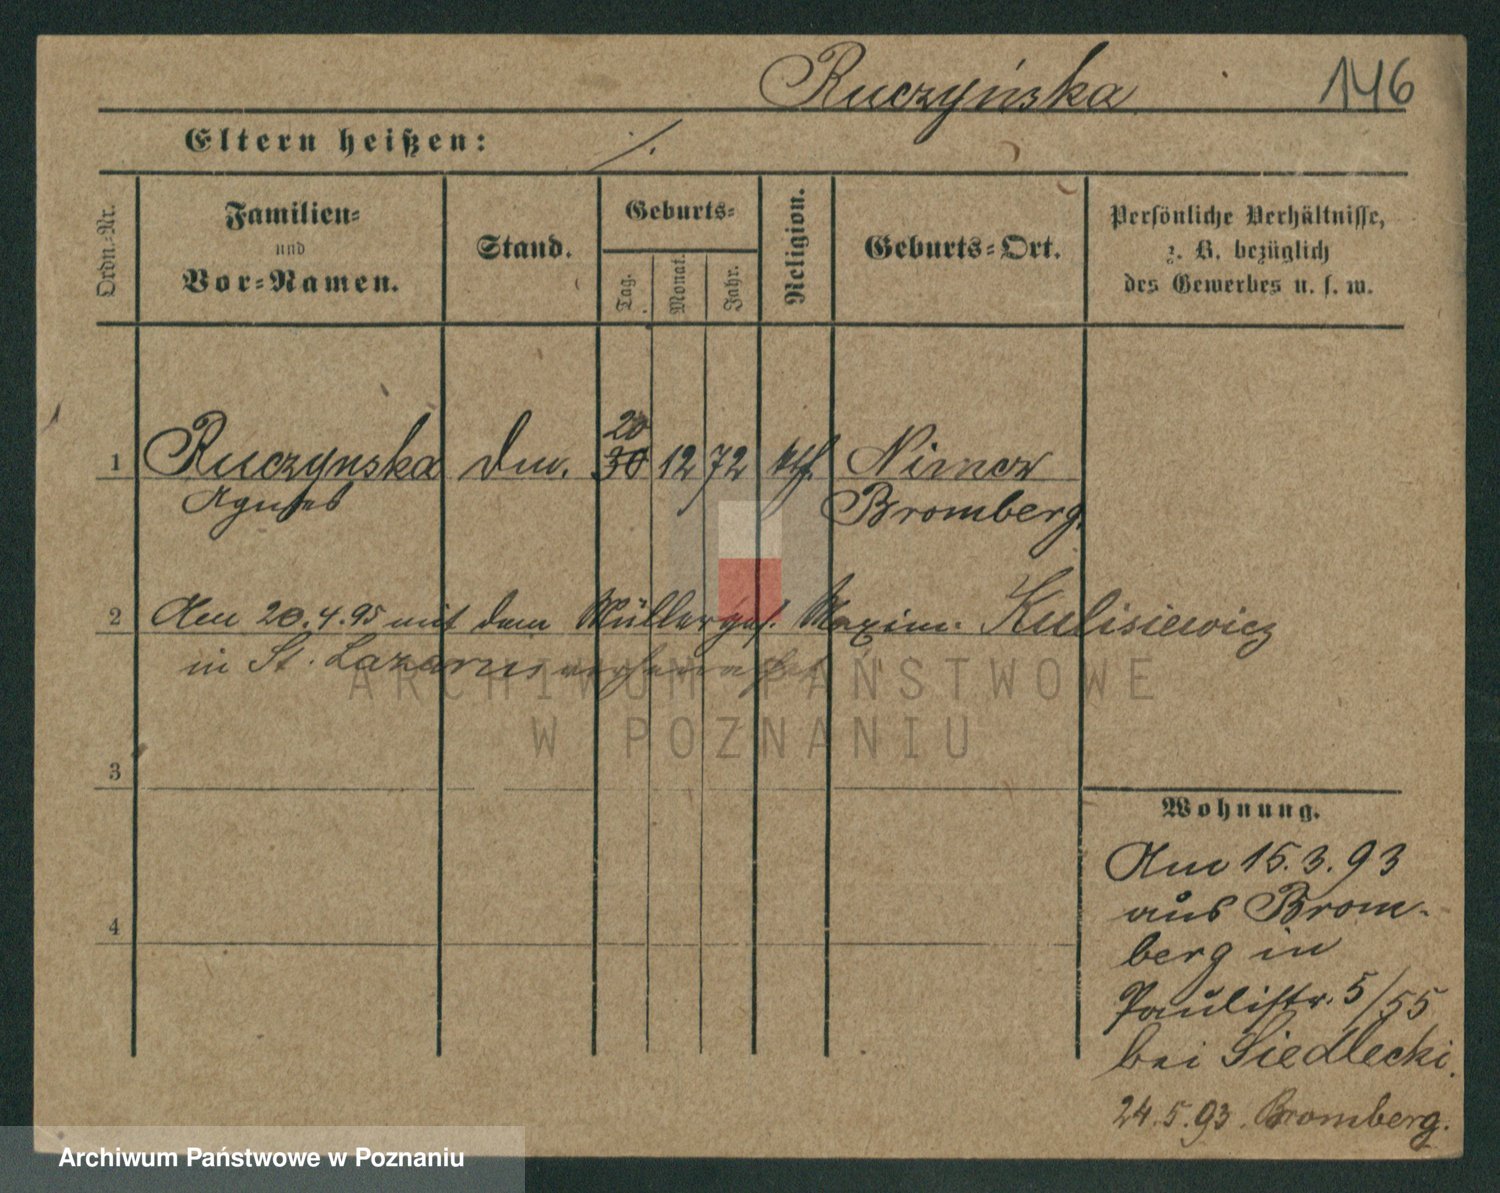 Ruczyńska 146
Eltern heißen: ./.
Ordn.-Nr.
Familien-
und
Vor-Namen.
Stand.
Geburts-
Tag.
Monat.
Jahr.
Religion.
Geburts-Ort.
Persönliche Verhältnisse,
z. B. bezüglich
des Gewerbes u. s. w.
20
1 Ruczynska 30 12 72 kth.
Agnes Bromberg.
2 Am 20.4.95 mit dem Müllerges. Maxim. Kulisiewicz
in St. Lazarus verheirathet
ARCHIWUM PAŃSTWOWE
W POZNANIU
3
Wohnung.
Am 15.3.93
aus Brom-
berg in
Paulistr. 5/55
bei Siedlecki.
4
24.5.93. Bromberg.
Archiwum Państwowe w Poznaniu